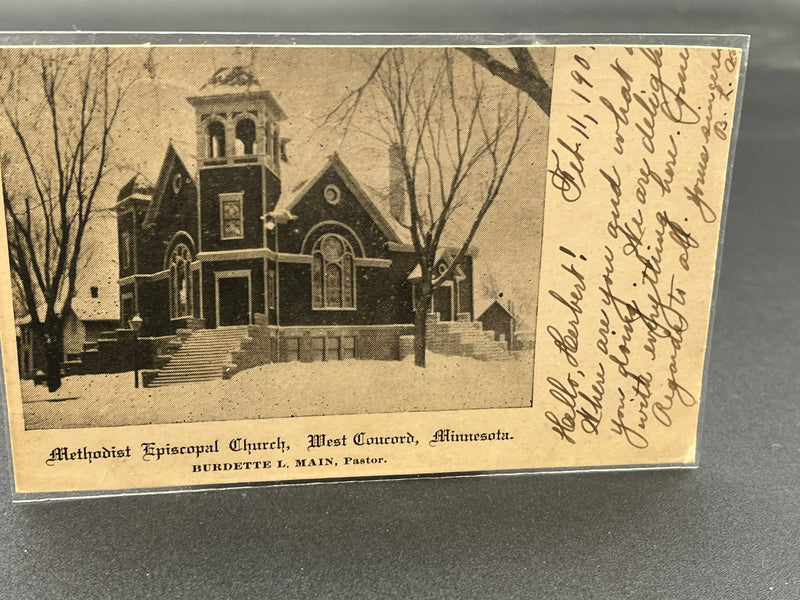 Methodist Episcopal Church, West Concord, Minnesota.
BURDETTE L. MAIN, Pastor.
Hello, Herbert! Feb. 11, 190
Where are you and what
you doing. We are deligh
with everything here.
Regards to all. Yours sincere
B. L.